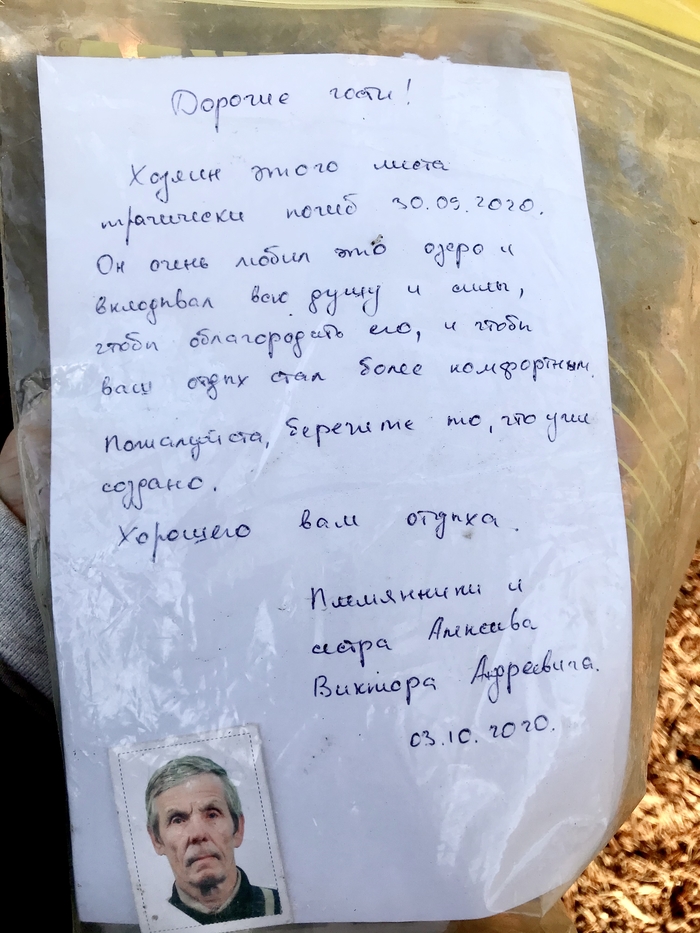 Дорогие гости!
Хозяин этого места
трагически погиб 30.09.2020.
Он очень любил это озеро и
вкладывал всю душу и силы,
чтобы облагородать его, и чтобы
ваш отдых стал более комфортным.
Пожалуйста, берегите то, что уже
создано.
Хорошего вам отдыха.
Племянники и
сестра Алексеева
Виктора Адреевича.
03.10.2020.